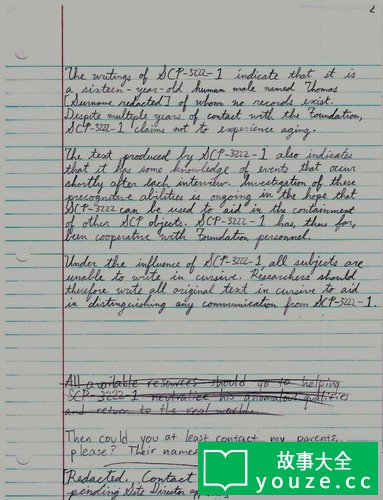 2
The writings of SCP-3222-1 indicate that it is
a sixteen-year-old human male named Thomas
[Surname redacted] of whom no records exist.
Despite multiple years of contact with the Foundation,
SCP-3222-1 claims not to experience aging.
The text produced by SCP-3222-1 also indicates
that it has some knowledge of events that occur
shortly after each interview. Investigation of these
precognitive abilities is ongoing in the hope that
SCP-3222 can be used to aid in the containment
of other SCP objects. SCP-3222-1 has, thus far,
been cooperative with Foundation personnel.
Under the influence of SCP-3222-1 all subjects are
unable to write in cursive. Researchers should
therefore write all original text in cursive to aid
in distinguishing any communication from SCP-3222-1.
All available resources should go to helping
SCP-3222-1 neutralize his anomalous qualities
and return to the real world.
Then could you at least contact my parents,
please? Their names
[Redacted. Contact
pending Site Director
故事大全
youze.cc